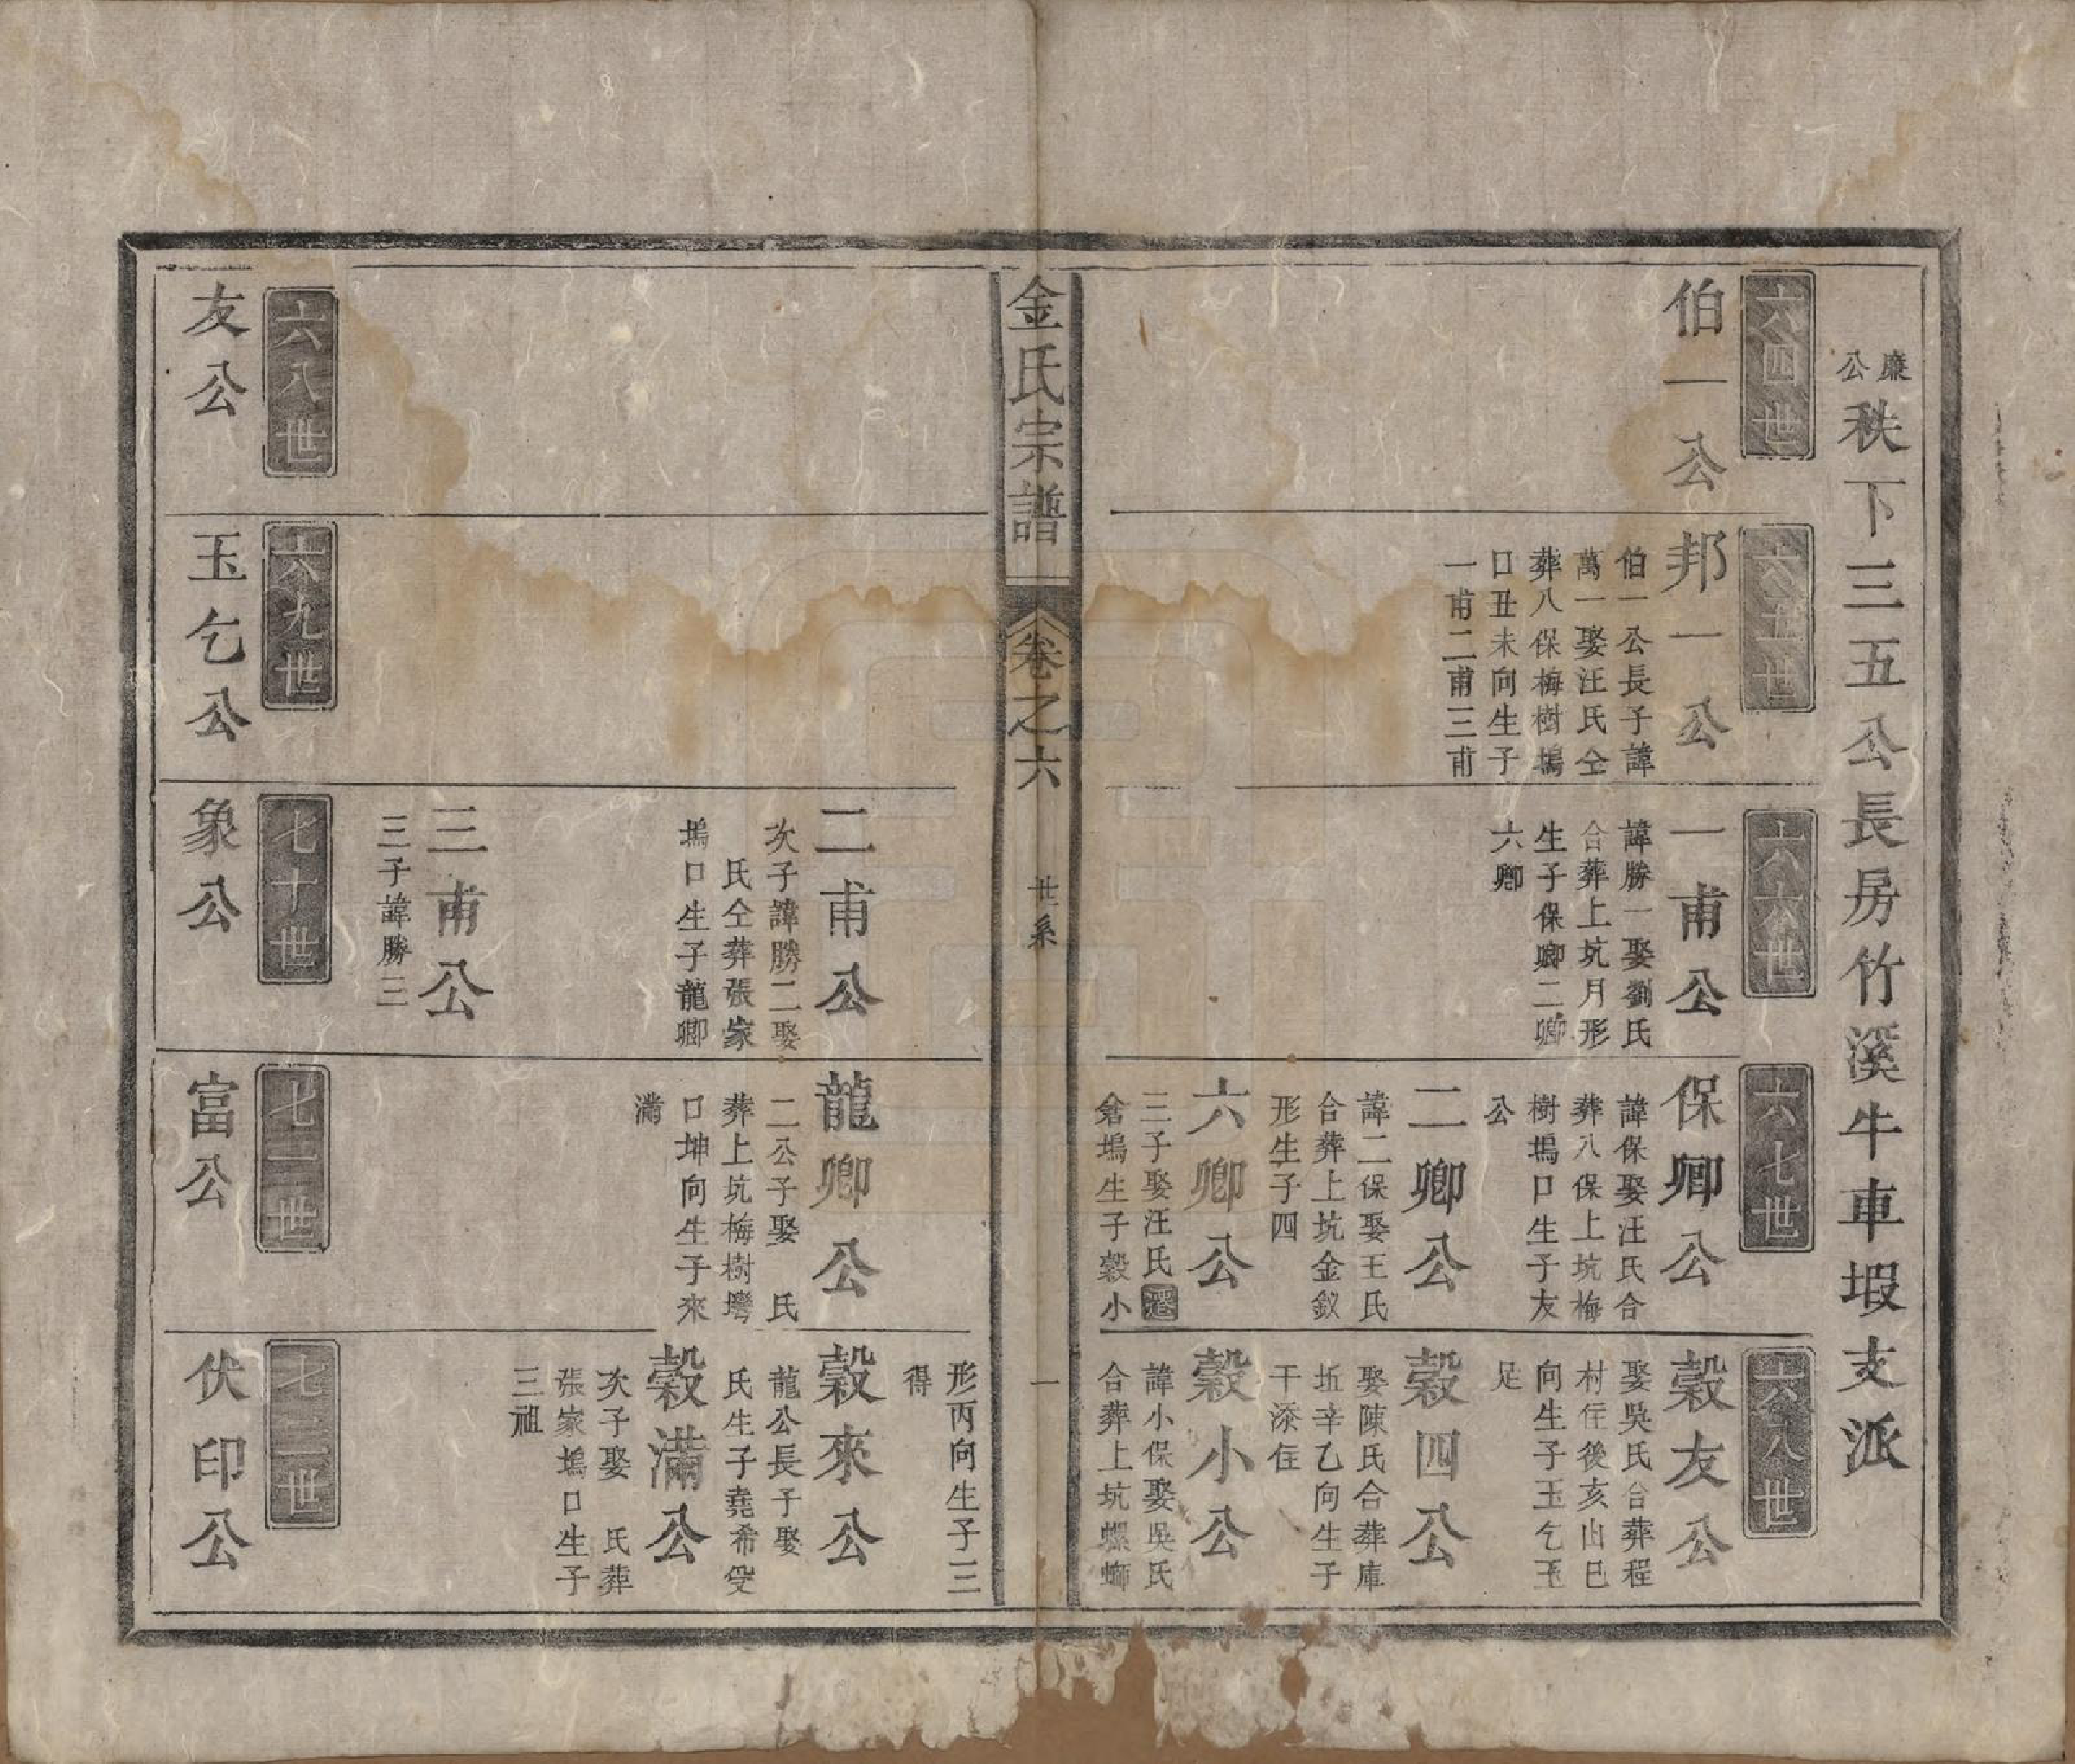 廉公秩下三五公長房竹溪牛車塅支派
六四世
伯一公
六五世
邦一公
伯一公長子諱
萬一娶汪氏仝
葬八保梅樹塢
口丑未向生子
一甫二甫三甫
六六世
一甫公
諱勝一娶劉氏
合葬上坑月形
生子保卿二卿
六卿
六七世
保卿公
諱保娶汪氏合
葬八保上坑梅
樹塢口生子友
公
二卿公
諱二保娶王氏
合葬上坑金釵
形生子四
六卿公
三子娶汪氏遷
倉塢生子穀小
六八世
穀友公
娶吳氏合葬程
村住後亥山巳
向生子玉乞玉
足
穀四公
娶陳氏合葬庫
坵辛乙向生子
干添住
穀小公
諱小保娶吳氏
合葬上坑螺螄
金氏宗譜
卷之六
世系
一
二甫公
次子諱勝二娶
氏仝葬張家
塢口生子龍卿
三甫公
三子諱勝三
龍卿公
二公子娶　氏
葬上坑梅樹塆
口坤向生子來
滿
形丙向生子三
得
穀來公
龍公長子娶
氏生子堯希受
穀滿公
次子娶　氏葬
張家塢口生子
三祖
六八世
友公
六九世
玉乞公
七十世
象公
七一世
富公
七二世
伏印公